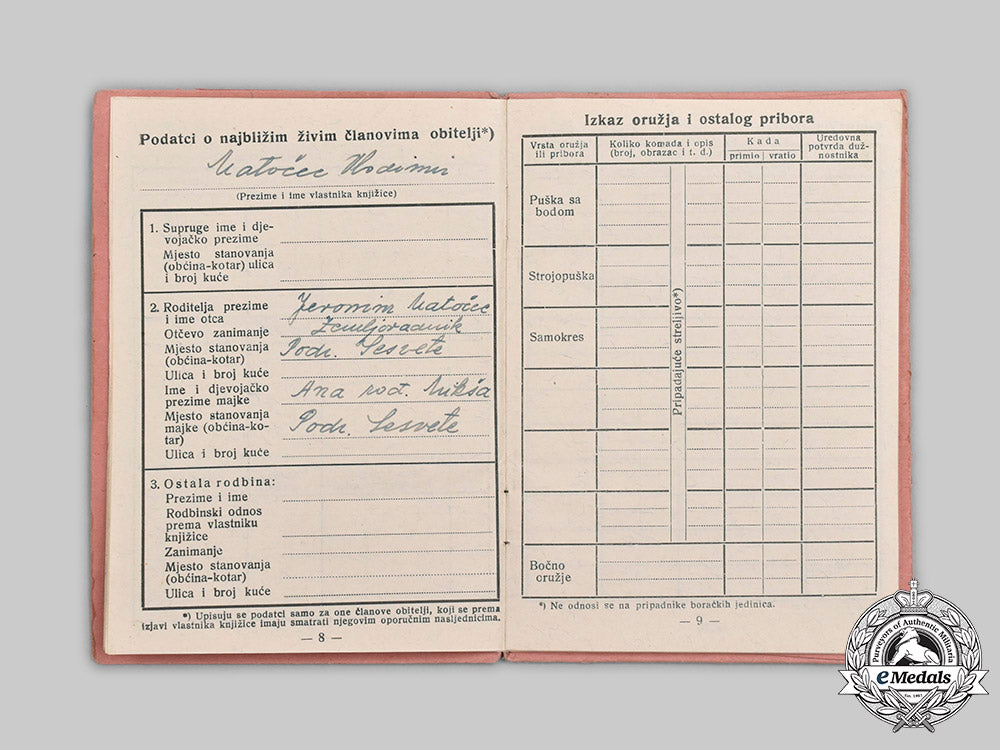 Podatci o najbližim živim članovima obitelji*)
Matočec Vladimir
(Prezime i ime vlastnika knjižice)
1. Supruge ime i dje-
vojačko prezime
Mjesto stanovanja
(obćina-kotar) ulica
i broj kuće
2. Roditelja prezime
i ime otca
Jeronim Matočec
Otčevo zanimanje
Zemljoradnik
Mjesto stanovanja
(obćina-kotar)
Podr. Sesvete
Ulica i broj kuće
Ime i djevojačko
prezime majke
Ana rođ. Mikša
Mjesto stanovanja
majke (obćina-ko-
tar)
Podr. Sesvete
Ulica i broj kuće
3. Ostala rodbina:
Prezime i ime
Rodbinski odnos
prema vlastniku
knjižice
Zanimanje
Mjesto stanovanja
(obćina-kotar)
Ulica i broj kuće
*) Upisuju se podatci samo za one članove obitelji, koji se prema
izjavi vlastnika knjižice imaju smatrati njegovim oporučnim nasljednicima.
— 8 —
Izkaz oružja i ostalog pribora
Vrsta oružja
ili pribora
Koliko komada i opis
(broj, obrazac i t. d.)
Kada
primio
vratio
Uredovna
potvrda duž-
nostnika
Puška sa
bodom
Strojopuška
Samokres
Pripadajuće streljivo*)
Bočno
oružje
*) Ne odnosi se na pripadnike boračkih jedinica.
— 9 —
Purveyors of Authentic Militaria
eMedals